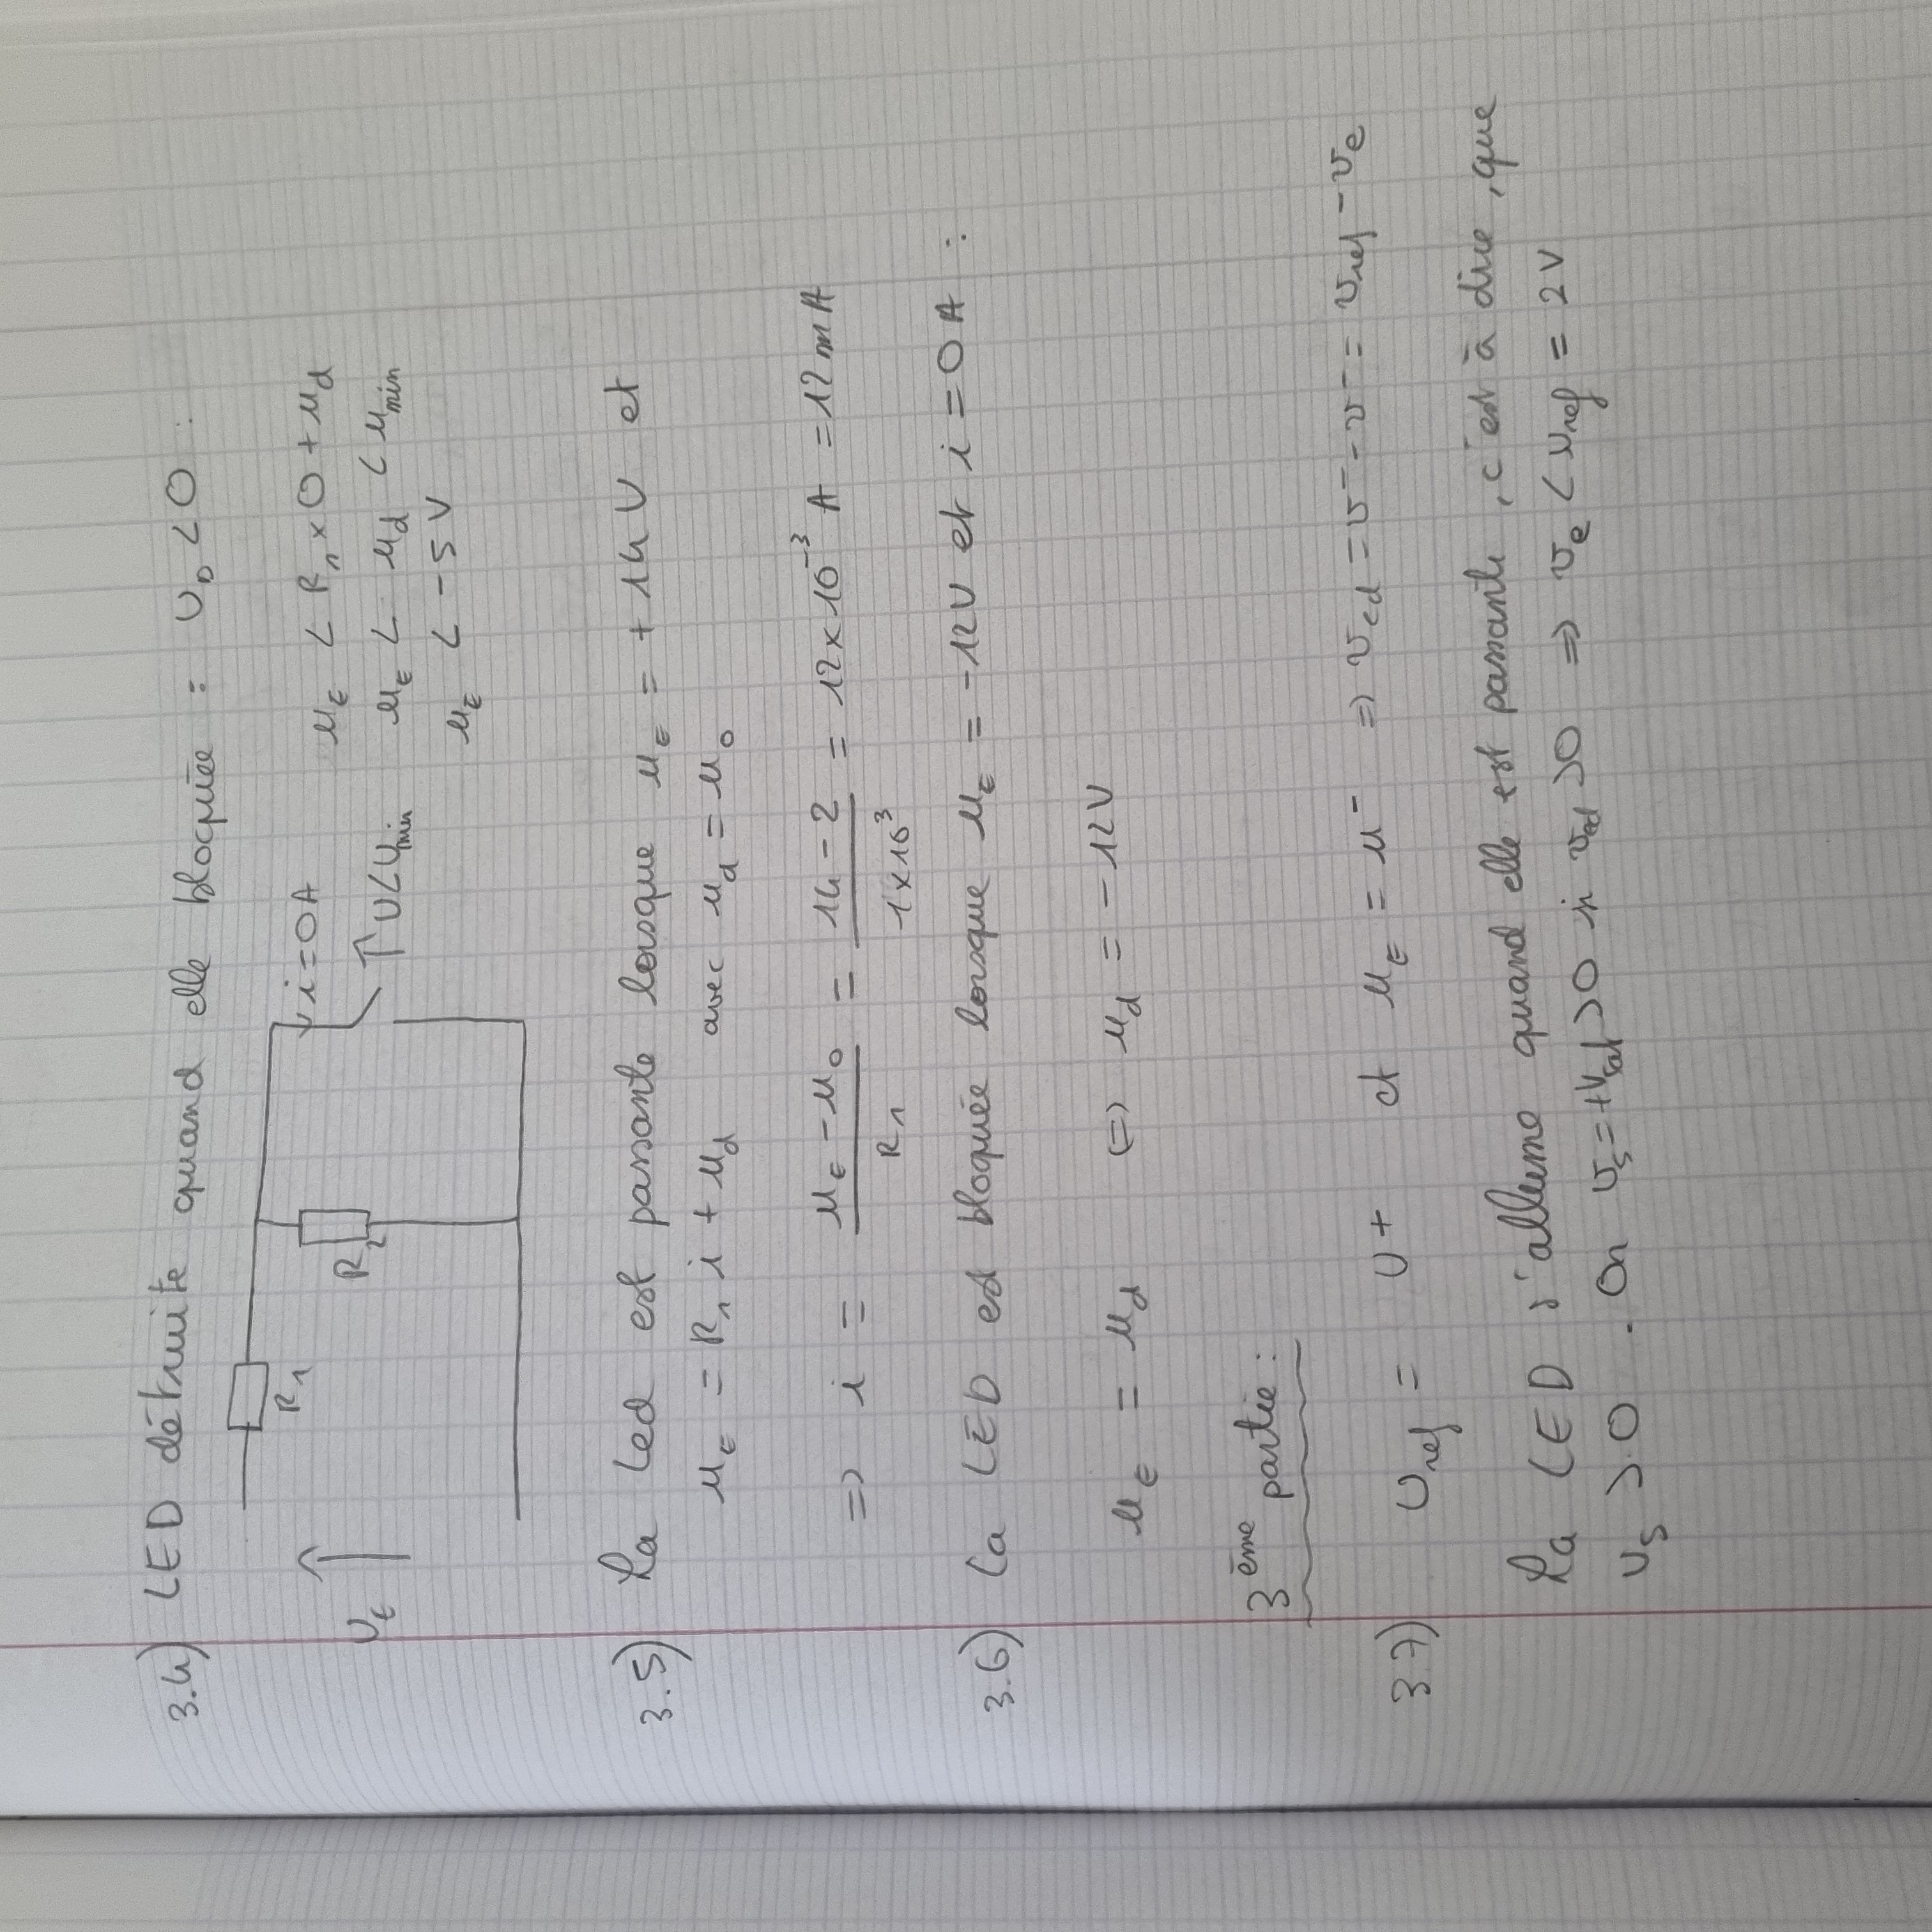 3.4) LED détruite quand elle bloquée : U_D < 0 :
R_1
R_2
U_E
i = 0A
U < U_min
u_E < R_1 × 0 + u_d
u_E < u_d < u_min
u_E < -5V
3.5) La Led est passante lorsque u_E = +14V et
u_E = R_1 i + u_d avec u_d = u_0
=> i = (u_E - u_0)/R_1 = (14 - 2)/(1×10^3) = 12×10^-3 A = 12mA
3.6) La LED est bloquée lorsque u_E = -12V et i = 0A :
u_E = u_d (=) u_d = -12V
3ème partie :
3.7) U_ref = U+ et u_E = u- => v_ed = v- - v- = v_ref - v_e
La LED s'allume quand elle est passante, c'est à dire, que
u_s > 0. On v_s = +V_sat > 0 si v_ed > 0 => v_e < u_ref = 2V